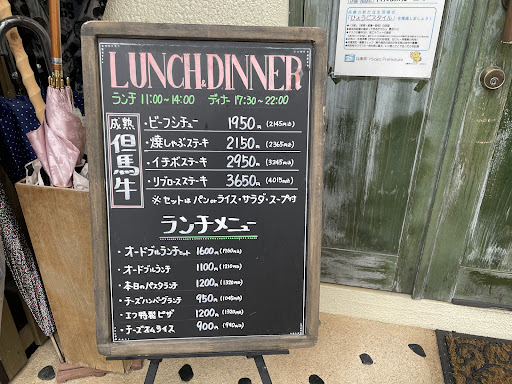 LUNCH&DINNER
ランチ 11:00～14:00 ディナー 17:30～22:00
成熟 但馬牛
・ビーフシチュー 1950円(2145税込)
・焼しゃぶステーキ 2150円(2365税込)
・イチボステーキ 2950円(3245税込)
・リブロースステーキ 3650円(4015税込)
※セットは パンorライス・サラダ・スープ付
ランチメニュー
・オードブルランチセット 1600円(1760税込)
・オードブルランチ 1100円(1210税込)
・本日のパスタランチ 1200円(1320税込)
・チーズハンバーグランチ 950円(1045税込)
・特製ピザ 1200円(1320税込)
・チーズオムライス 900円(990税込)
「ひょうごスタイル」
兵庫県 Hyogo Prefecture